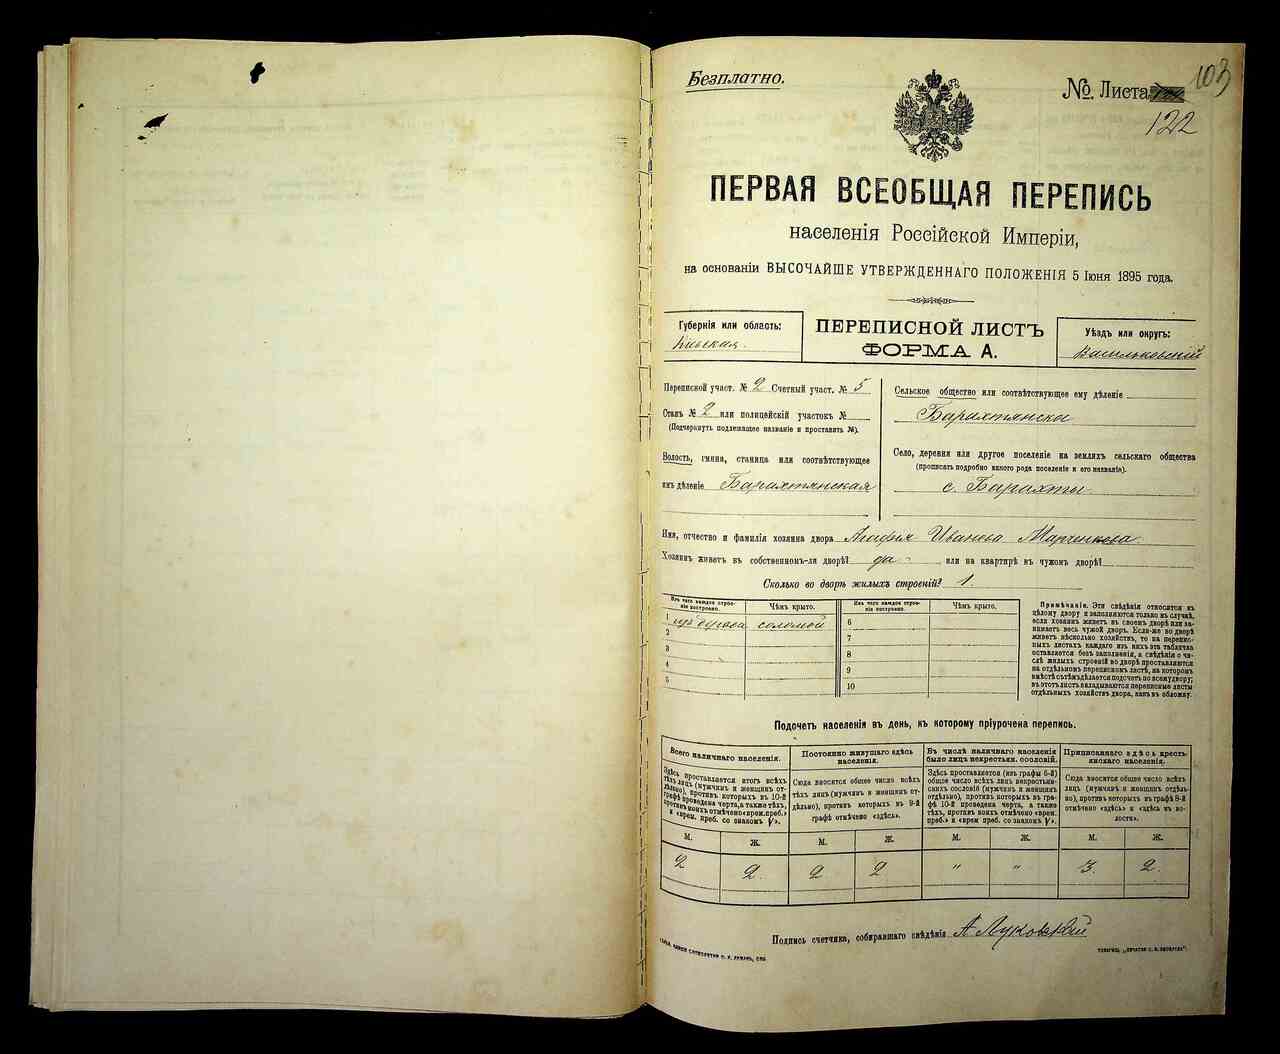 Безплатно.
103
№ Листа
122
ПЕРВАЯ ВСЕОБЩАЯ ПЕРЕПИСЬ
населенія Россійской Имперіи,
на основаніи ВЫСОЧАЙШЕ УТВЕРЖДЕННАГО ПОЛОЖЕНІЯ 5 Іюня 1895 года.
Губернія или область:
Кіевская.
ПЕРЕПИСНОЙ ЛИСТЪ
ФОРМА А.
Уѣздъ или округъ:
Васильковскій
Переписной участ. № 2 Счетный участ. № 5
Станъ № 2 или полицейскій участокъ №
(Подчеркнуть подлежащее названіе и проставить №).
Волость, гмина, станица или соотвѣтствующее
имъ дѣленіе Барахтянская
Сельское общество или соотвѣтствующее ему дѣленіе
Барахтянское
Село, деревня или другое поселеніе на земляхъ сельскаго общества
(прописать подробно какого рода поселеніе и его названіе).
с. Барахты.
Имя, отчество и фамилія хозяина двора Агафія Иванова Марченкова.
Хозяинъ живетъ въ собственномъ-ли дворѣ? да - или на квартирѣ въ чужомъ дворѣ?
Сколько во дворѣ жилыхъ строеній? 1.
Изъ чего каждое строеніе построено.
Чѣмъ крыто.
1 изъ дерева соломой
2
3
4
5
Изъ чего каждое строеніе построено.
Чѣмъ крыто.
6
7
8
9
10
Примѣчаніе. Эти свѣдѣнія относятся къ
цѣлому двору и заполняются только въ случаѣ,
если хозяинъ живетъ въ своемъ дворѣ или занимаетъ
весь чужой дворъ. Если-же во дворѣ
живетъ нѣсколько хозяйствъ, то на переписныхъ
листахъ каждаго изъ нихъ эта табличка
оставляется безъ заполненія, а свѣдѣнія о числѣ
жилыхъ строеній во дворѣ проставляются
на отдѣльномъ переписномъ листѣ, на которомъ
вмѣстѣ съ тѣмъ дѣлается подсчетъ по всему двору;
въ этотъ листъ вкладываются переписные листы
отдѣльныхъ хозяйствъ двора, какъ въ обложку.
Подсчетъ населенія въ день, къ которому пріурочена перепись.
Всего наличнаго населенія.
Здѣсь проставляется итогъ всѣхъ
тѣхъ лицъ (мужчинъ и женщинъ отдѣльно),
противъ которыхъ въ 10-й
графѣ проведена черта, а также тѣхъ,
противъ коихъ отмѣчено «врем. преб.»
и «врем. преб. со знакомъ V».
Постоянно живущаго здѣсь населенія.
Сюда вносится общее число всѣхъ
тѣхъ лицъ (мужчинъ и женщинъ отдѣльно),
противъ которыхъ въ 9-й
графѣ отмѣчено «здѣсь».
Въ числѣ наличнаго населенія
было лицъ некрестьян. сословій.
Здѣсь проставляется (изъ графы 6-й)
общее число всѣхъ лицъ некрестьянскихъ
сословій (мужчинъ и женщинъ
отдѣльно), противъ которыхъ въ графѣ
10-й проведена черта, а также
тѣхъ, противъ коихъ отмѣчено «врем.
преб.» и «врем. преб. со знакомъ V».
Приписаннаго здѣсь крестьянскаго населенія.
Сюда вносится общее число всѣхъ
лицъ (мужчинъ и женщинъ отдѣльно),
противъ которыхъ въ графѣ 8-й
отмѣчено «здѣсь» и «здѣсь въ волости».
М. Ж. М. Ж. М. Ж. М. Ж.
2 2. 2 2 " " 3. 2.
Подпись счетчика, собиравшаго свѣдѣнія А Луковскій